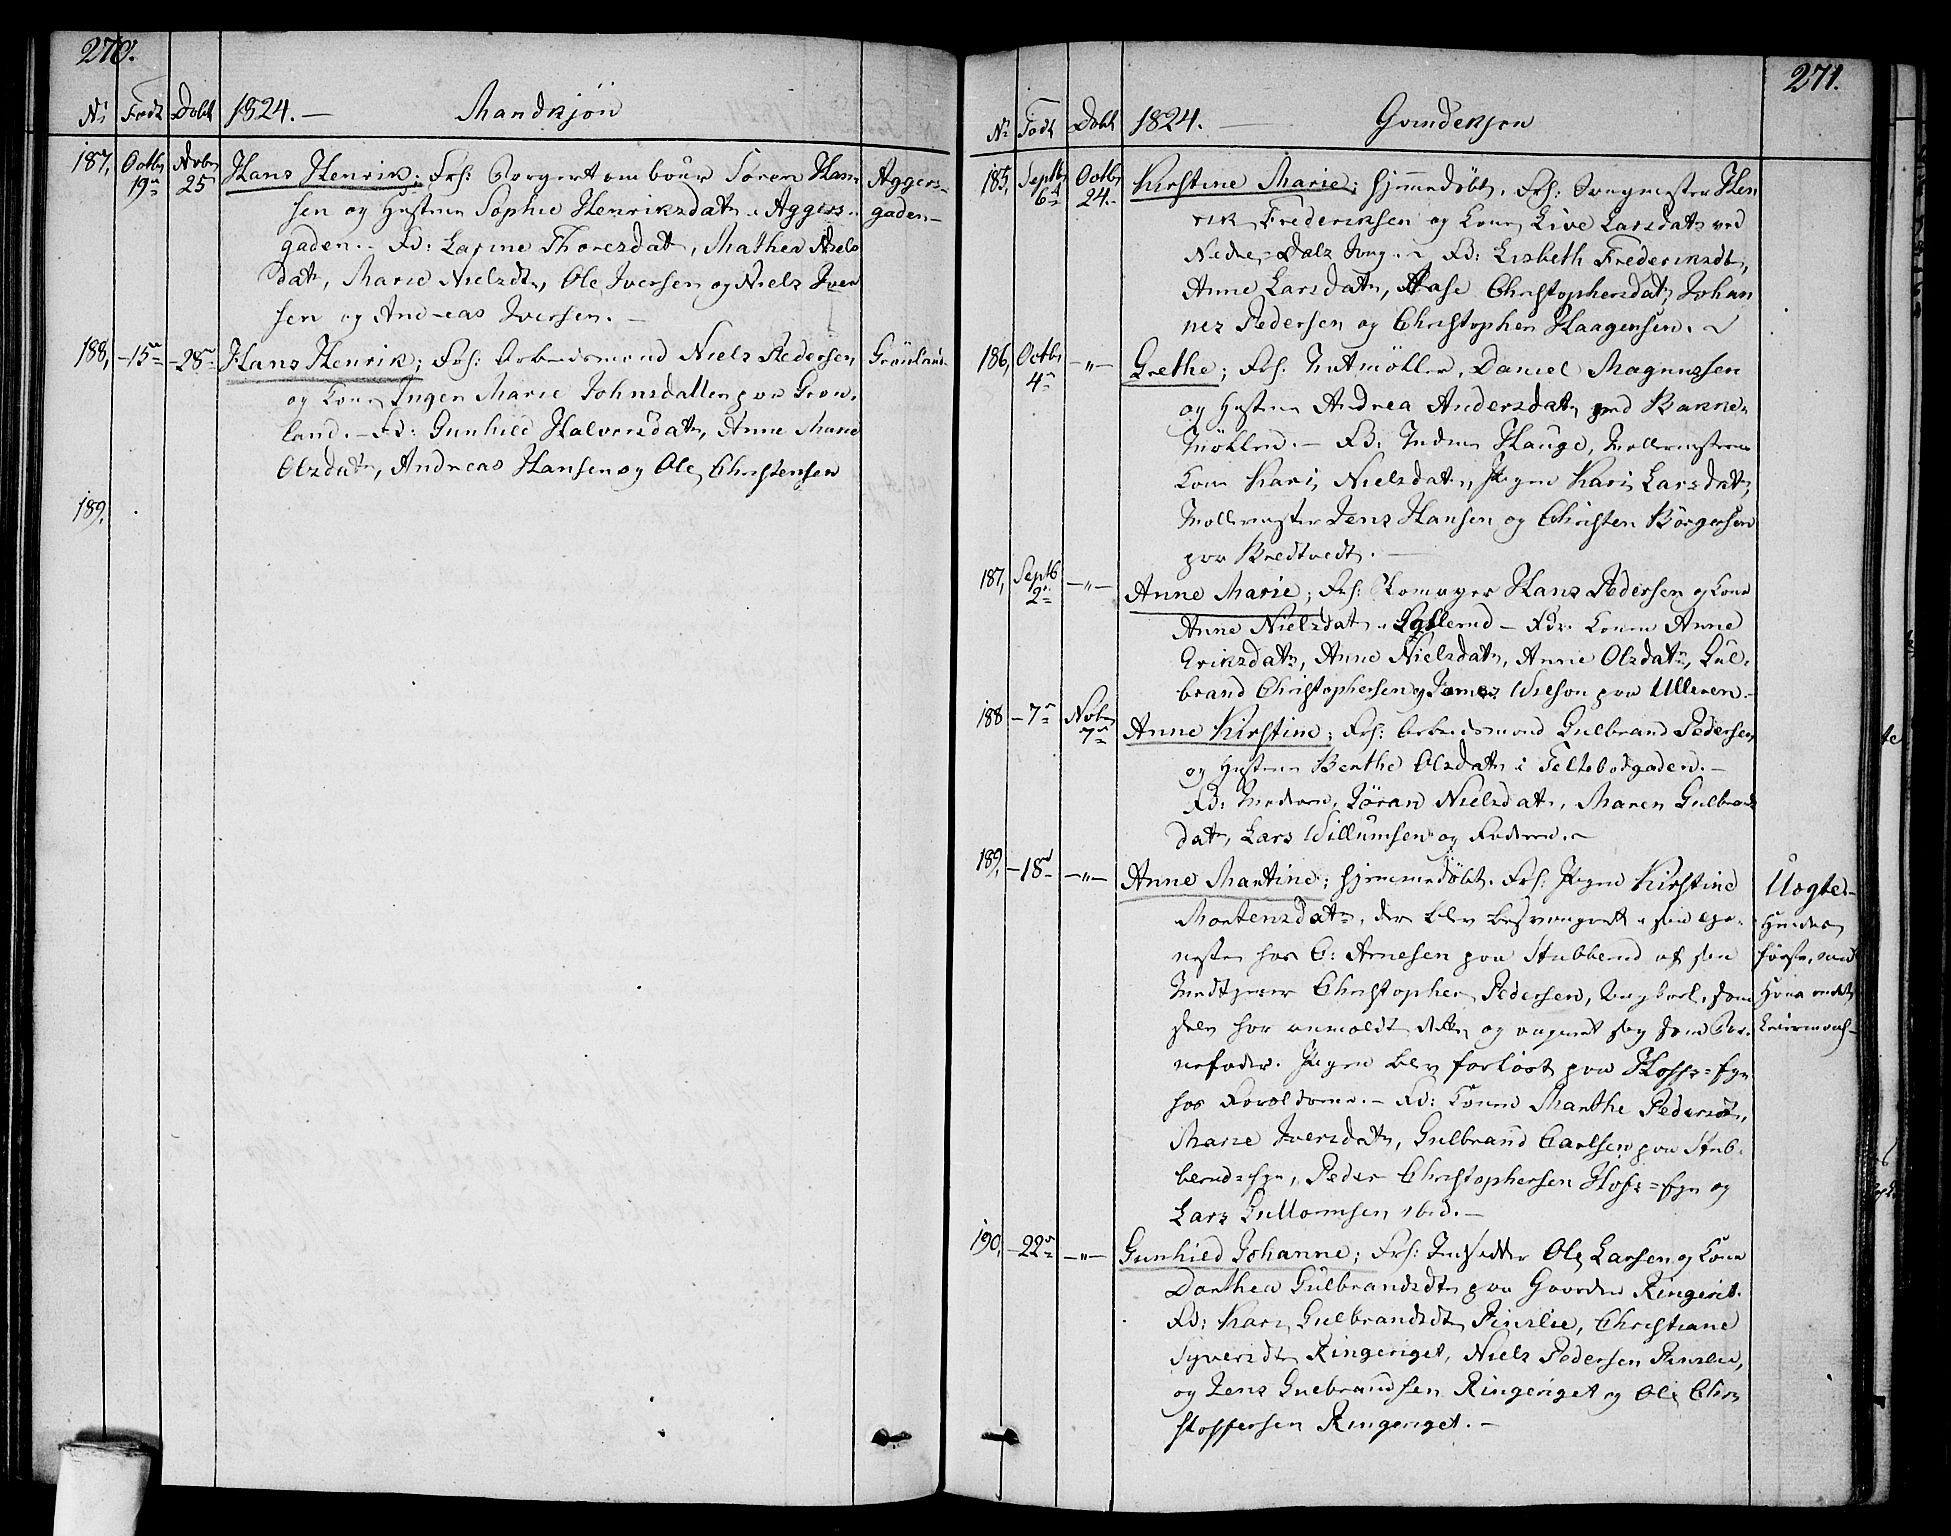 270.
No Født Døbt 1824.— Mandkjön
187, Octbr 19de Nvbr 25 Hans Henrik; Frh: Borger Tambour Sören Han-
sen og Hustrue Sophie Henriksdatr i Aggers-
gaden.- Fd: Larine Thoresdatr, Mathea Niels
datr, Marie Nielsdtr, Ole Iversen og Niels Iver
sen og Andreas Iversen.—
Aggers-
gaden—
188, —15de —28de Hans Henrik; Frh: Arbeidsmand Niels Pedersen,
og Kone Inger Marie Johnsdatter paa Grön-
land.— Fd: Gunhild Halvorsdatr, Anne Marie
Olsdatr, Andreas Hansen og Ole Christensen
Grönland.
189,
271.
No Født Døbt 1824.— Qvindekjøn
185, Septbr 6te Octbr 24.- Kirstine Marie; hjemmedöbt. Frh: Hen
rik Frederiksen og Kone Live Larsdatr ved
Nedre-Dals . Fd: Lisbeth Frederiksdtr,
Anne Larsdatr, Aase Christophersdatr, Johan
nes Pedersen og Christopher Haagensen.
186, Octbr 4de —"— Grethe; Frh: Daniel Magnussen
og Hustrue Andrea Andersdatr ved Banne-
Möllen.— Fd: Hauge, Mollermesterens
Kone Kari Nielsdatr, Pigen Kari Larsdatr,
Mollermester Jens Hansen og Christen Börgersen
paa Bredtvedt.—
187, Septb 2den —"— Anne Marie; Frh: Skomager Hans Pedersen og Kone
Anne Nielsdatr i — Fdr: Konen Anne
Eriksdatr, Anne Nielsdatr, Anne Olsdatr, Gul-
brand Christophersen og James Wilson paa Ulleren.—
188 —7de Nvbr 7de Anne Kirstine; Frh: Arbeidsmand Gulbrand Pedersen,
og Hustrue Berthe Olsdatr i Feltebodgaden.—
Fd: Moderen, Jöran Nielsdatr, Maren Gulbrands
datr, Lars Willumsen og Faderen.—
189, —18de —"— Anne Martine; hjemmedöbt. Frh: Pigen Kirstine
Mortensdatr, der blev besvangret i sin tje-
neste hos C: Arnesen paa Stubberud af sin
Medtjener Christopher Pedersen, Ungkarl, som
selv har anmeldt dette og angivet sig som Bar-
nefader. Pigen blev forlöst paa Hoffs-Eje
hos Forældrene.— Fd: Konen Marthe Pedersdtr,
Marie Iversdatr, Gulbrand Carlsen paa Stub-
beruds-Eje, Peder Christophersen Hofs-Eje og
Lars Gullormsen ibid.—
Uægte.
Hendes
første, med
Leiermaal—
190, —22de —"— Gunhild Johanne; Frh: Indsidder Ole Larsen og Kone
Dorthea Gulbrandsdtr paa Gaarden Ringerig.
Fd: Kari Gulbrandsdtr , Christiane
Syversdtr Ringeriget, Niels Pedersen ,
og Jens Gulbrandsen Ringeriget og Ole Chri
stoffersen Ringeriget.—